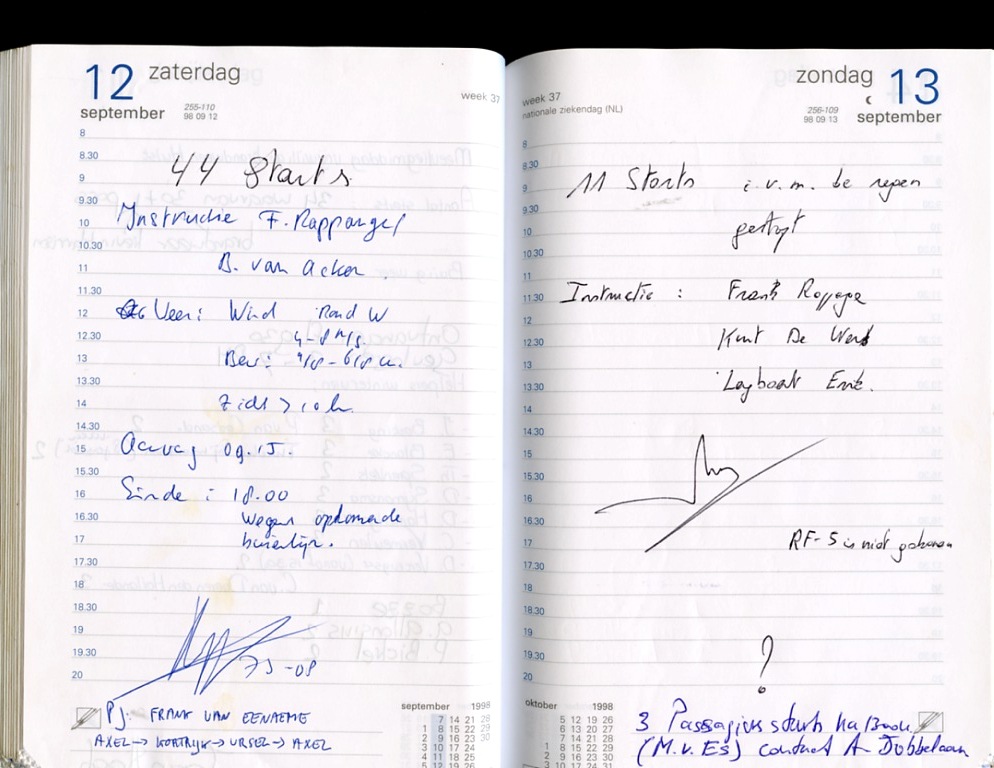 12 zaterdag
september
255-110
98 09 12
week 37
8
8.30
44 Starts
9
9.30
10
Instructie F. Rappange
10.30
B. van Acker.
11
11.30
12
Weer: Wind Rond W
12.30
4-8 m/s.
13
13.30
14
Zicht > 10 k.
14.30
15
Aanvang 09.15.
15.30
16
Einde : 18.00
16.30
Wegens opkomende
17
buienlijn.
17.30
18
18.30
19
19.30
20
PJ: FRANK VAN EENAEME
AXEL → KORTRIJK → URSEL → AXEL
september 1998
7 14 21 28
1 8 15 22 29
2 9 16 23 30
3 10 17 24
4 11 18 25
5 12 19 26
zondag 13
september
256-109
98 09 13
week 37
nationale ziekendag (NL)
8
8.30
9
11 Starts i.v.m. de regen
9.30
10
gestopt
10.30
11
11.30
Instructie : Frank
12
12.30
Kurt De
13
13.30
14
14.30
15
15.30
16
16.30
17
RF-5 is niet gekomen
17.30
18
18.30
19
19.30
?
20
oktober 1998
5 12 19 26
6 13 20 27
7 14 21 28
1 8 15 22 29
2 9 16 23 30
3 10 17 24 31
3 Passagiersstarts
(M.v.Es) contact A. Dobbelaar